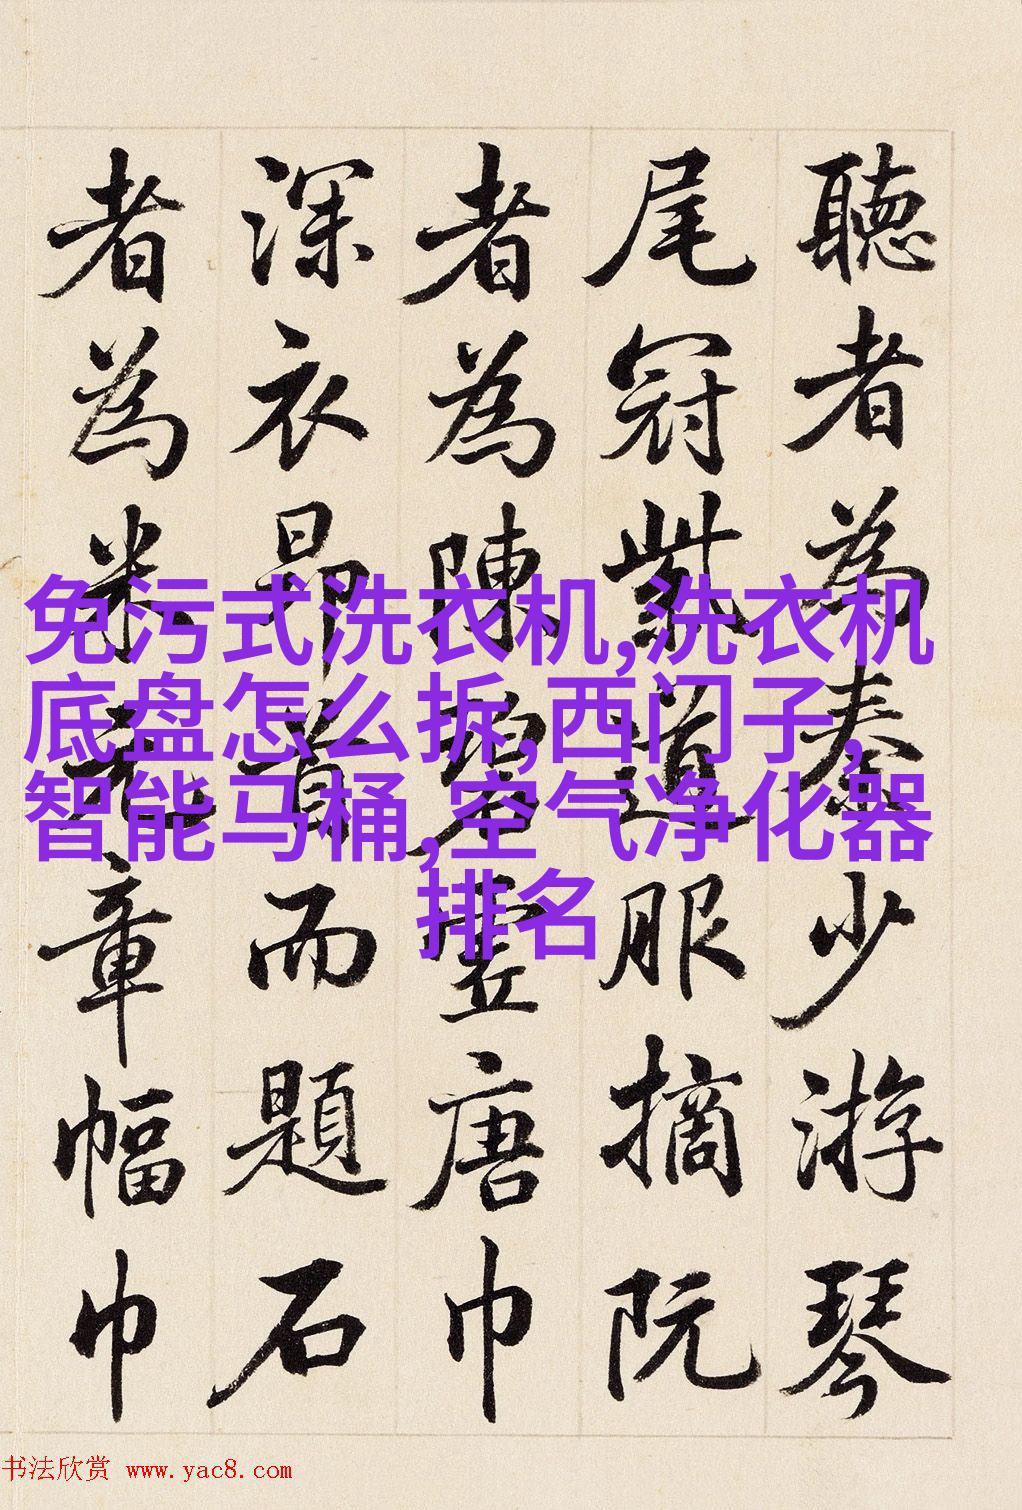 聽者為秦少游琴
尾冠紫道服摘阮
者為陳碧虛唐巾
深衣昂首而題石
者為米元章幅巾
免污式洗衣机,洗衣机
底盘怎么拆,西门子,
智能马桶,空气净化器
排名
书法欣赏 www.yac8.com